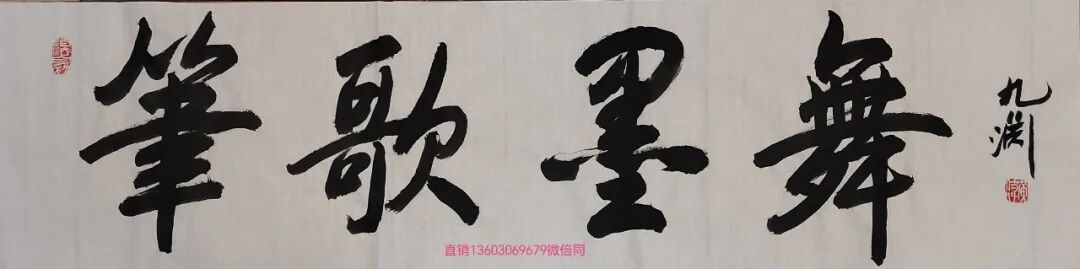 筆歌墨舞
九渊
直销13603069679微倍同